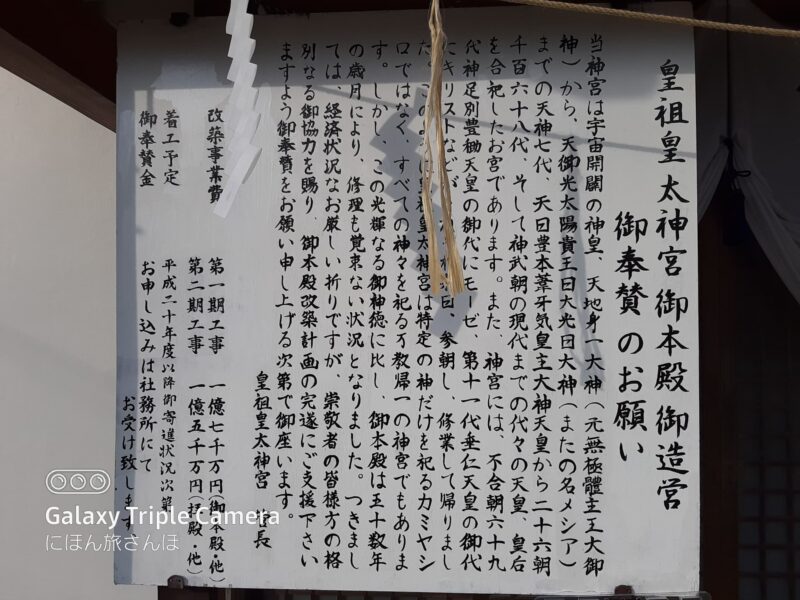 皇祖皇太神宮御本殿御造営
御奉賛のお願い
当神宮は宇宙開闢の神皇、天地身一大神(元無極體主王大御
神)から、天御光太陽貴王日大光日大神(またの名メシア)
までの天神七代、天日豊本葦牙気皇主大神天皇から二十六朝
千百六十八代、そして神武朝の現代までの代々の天皇、皇后
を合祀したお宮であります。また、神宮には、不合朝六十九
代神足別豊鋤天皇の御代にモーゼ 第十一代垂仁天皇の御代
にキリストなどが 来日、参朝し、修業して帰りまし
た。このように皇祖皇太神宮は特定の神だけを祀るカミヤシ
ロではなく、すべての神々を祀る万教帰一の神宮でもありま
す。しかし、この光輝なる御神徳に比し、御本殿は五十数年
の歳月により、修理も覚束ない状況となりました。つきまし
ては、経済状況なお厳しい折りですが、崇敬者の皆様方の格
別なる御協力を賜り、御本殿改築計画の完遂にご支援下さい
ますよう御奉賛をお願い申し上げる次第で御座います。
皇祖皇太神宮 管長
改築事業費 第一期工事 一億七千万円(御本殿・他)
第二期工事 一億五千万円(拝殿・他)
着工予定 平成二十年度以降御寄進状況次第
御奉賛金 お申し込みは社務所にて
お受け致します
Galaxy Triple Camera
にほん旅さんほ